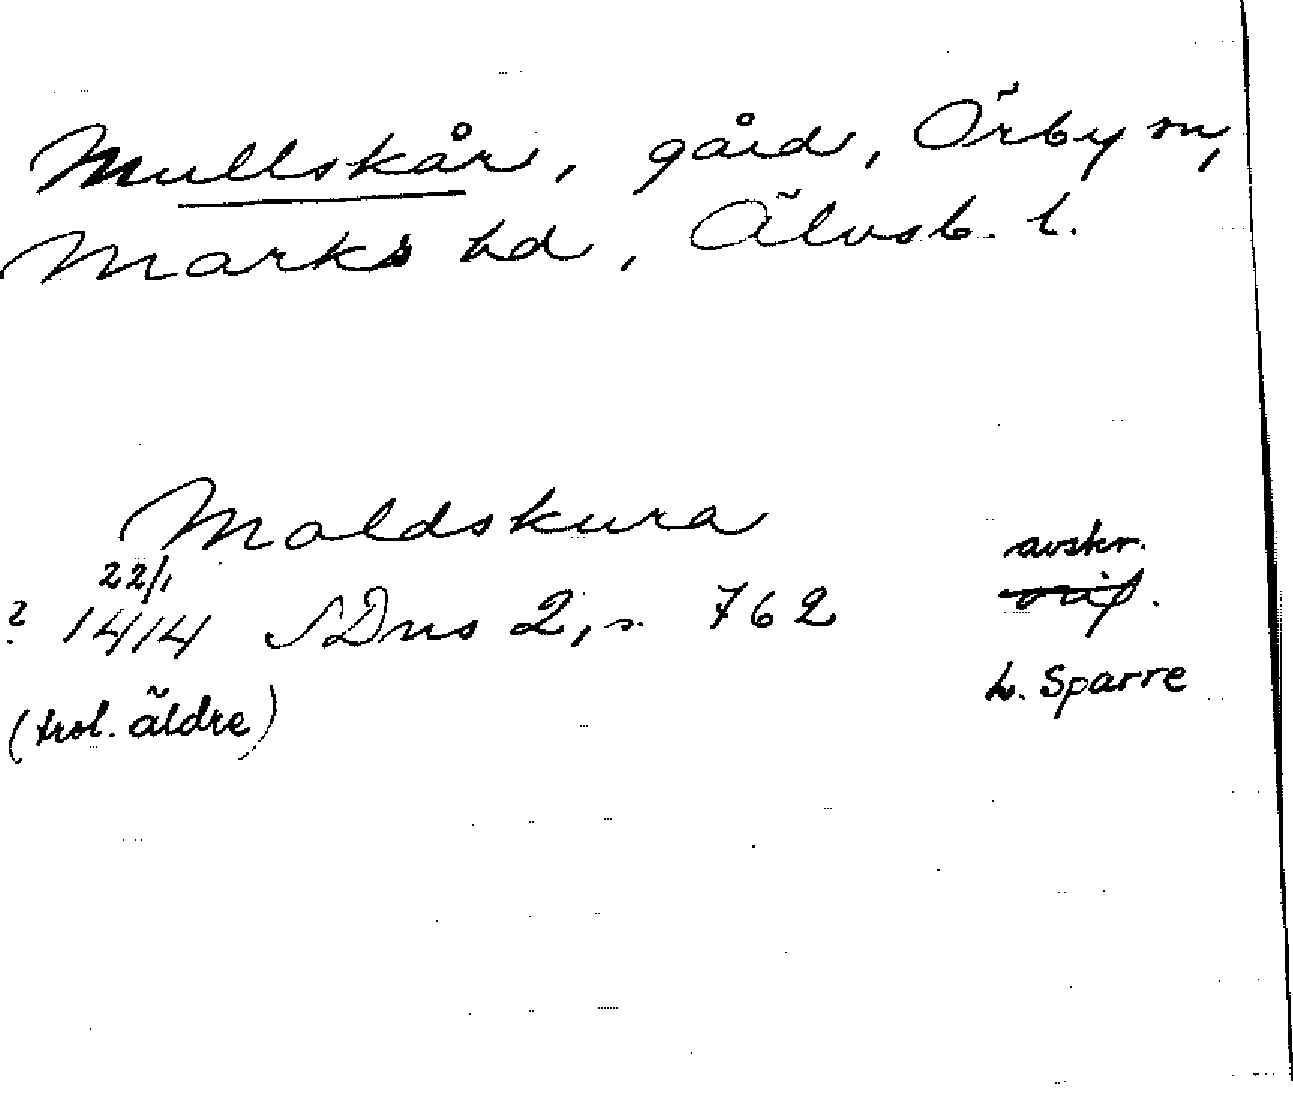 Mullskår, gård, Örby sn,
Marks hd, Älvsb. l.
Moldskura
avskr.
22/1
? 1414 SDns 2, s. 762 orig.
(trol. äldre)
L. Sparre